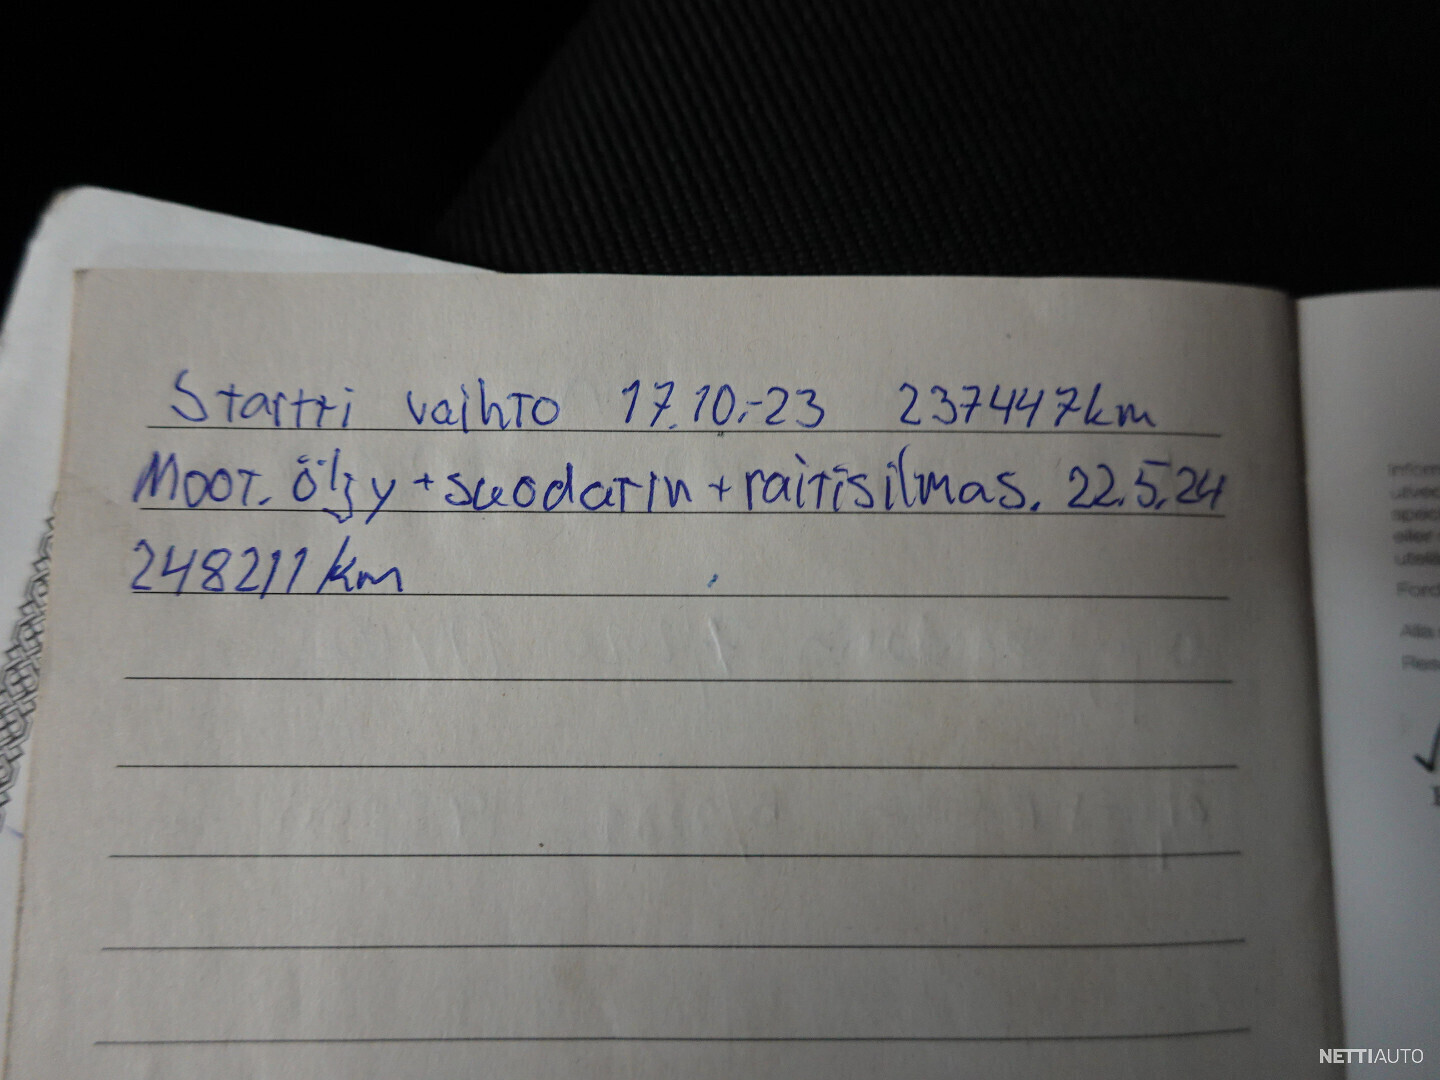 Startti vaihto 17.10.-23 237447km
Moot. öljy + suodatin + raitisilmas. 22.5.24
248211 km
Inform
utvec
spec
eller
utela
Ford
Alla
Res
NETTIAUTO